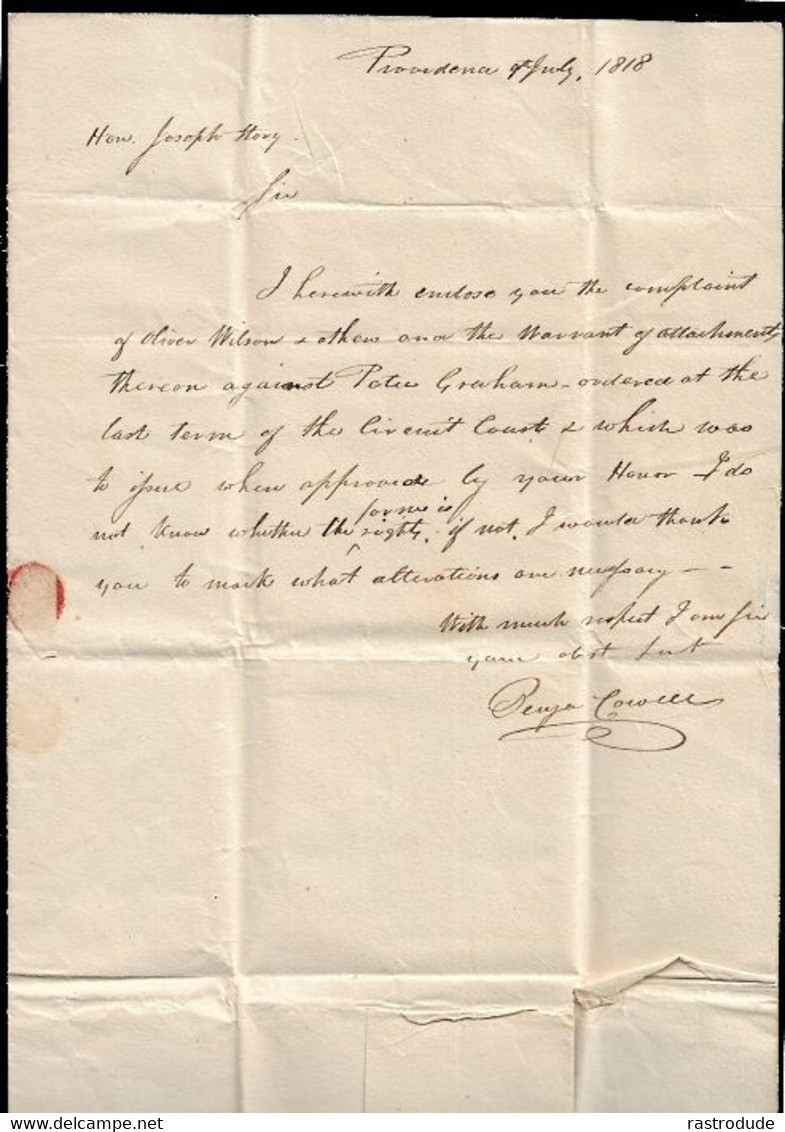 Providence 9th July, 1818
Hon. Joseph Story.
Sir
I herewith enclose you the complaint
of Oliver Wilson & others and the Warrant of attachment
thereon against Peter Graham - ordered at the
last term of the Circuit Court & which was
to issue when approved by your Honor I do
form is
not know whether the ^ right, if not, I would thank
you to mark what alterations are necessary - -
With much respect I am Sir
your obst Svt
Benja Cowell
delcampe.net
rastrodude